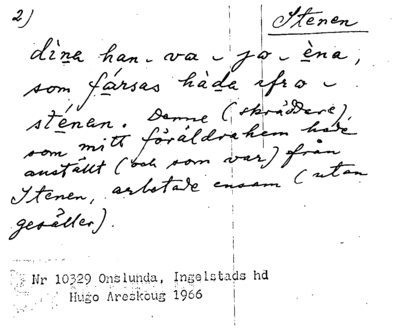 2)
Stenen
dina han - va - jo - èna,
som fársas hàda ifrå -
sténan. Denne (skräddare),
som mitt föräldrahem hade
anställt (och som var) från
Stenen, arbetade ensam (utan
gesäller).
Nr 10329 Onslunda, Ingelstads hd
Hugo Areskoug 1966